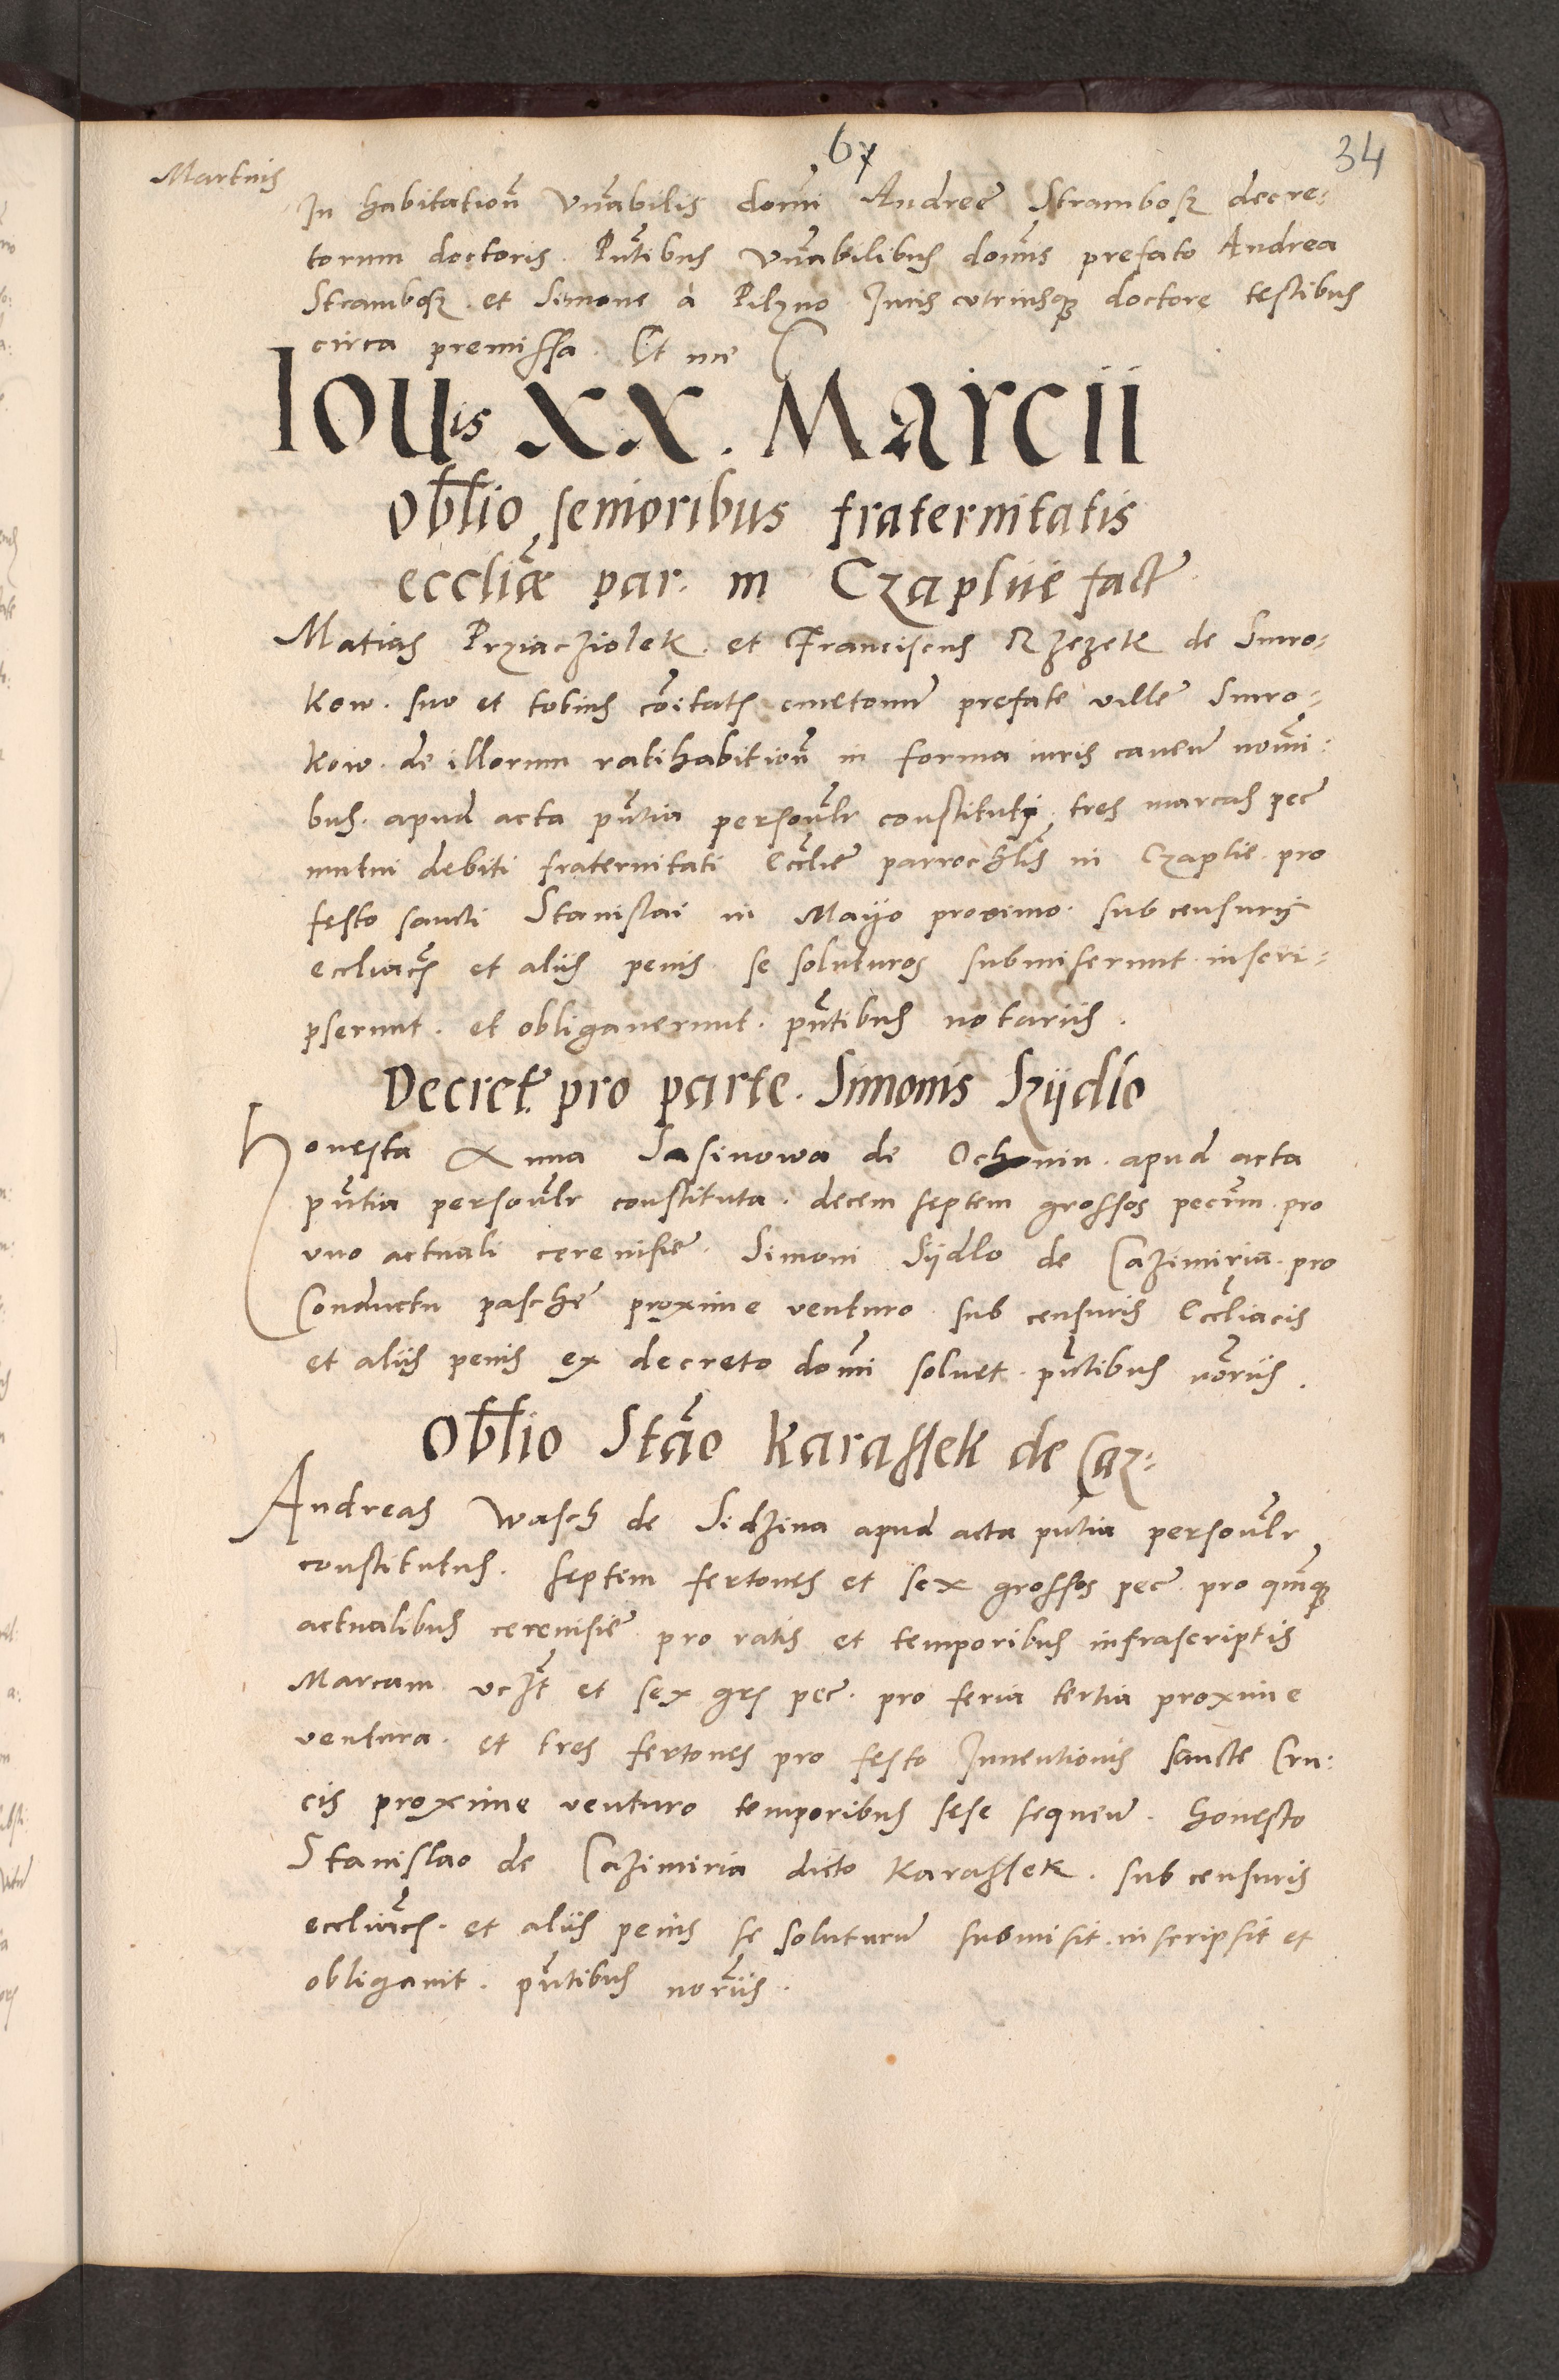 67
34
Martinis
In habitation̄ Vnābilis domi Andree Strambosz decre-
torum doctoris. Pn̄tibus Vnābilibus domīs prefato Andrea
Strambosz. et Simone a Pilzno Juris vtriusqꝫ doctore testibus
circa premissa. Et me
Iouis XX. Marcii
Obl̄io senioribus fraternitatis
eccli͠æ par. in Czaplie fact̄
Matias Przijacziolek. et Franciscus Rzezek de Smro-
kow. suo et totius cōitatis cmetonū prefate ville Smro-
kow. de illorum ratihabition̄ in forma iuris cauen̄ nomi-
bus. apud acta pn̄tia personl̄r constituti tres marcas pec̄
mutui debiti fraternitati Eccl̄ie parrochl̄is in Czaplie. pro
festo sancti Stanislai in Mayo proximo. sub censuris
eccl̄iacis et aliis penis se soluturos submiserunt. inscri-
pserunt. et obligauerunt. pn̄tibus notariis.
Decret̄ pro parte. Simonis Szijdlo
Honesta Anna Sasinowa de Ochonin. apud acta
pn̄tia personl̄r constituta. decem septem grossos pecūm. pro
vno actuali cereuisie. Simoni Sijdlo de Cazimiria. pro
Conductu pasche proxime venturo. sub censuris Eccl̄iacis
et aliis penis ex decreto domi soluet. pn̄tibus norīis.
Obl̄io Stāo Karassek de Caz-
Andreas Wasch de Sidzina apud acta pn̄tia personl̄r
constitutus. septem fertones et sex grossos pec̄. pro qnīqꝫ
actualibus cereuisie pro ratis et temporibus infrascriptis
Marcam vcz̄t et sex grs̄ pec̄. pro feria tertia proxime
ventura. et tres fertones pro festo Inuentionis sancte Cru-
cis proxime venturo temporibus sese sequen̄. Honesto
Stanislao de Cazimiria dicto Karassek. sub censuris
eccl̄iacis. et aliis penis se soluturū submisit. inscripsit et
obligauit. pn̄tibus norīis.